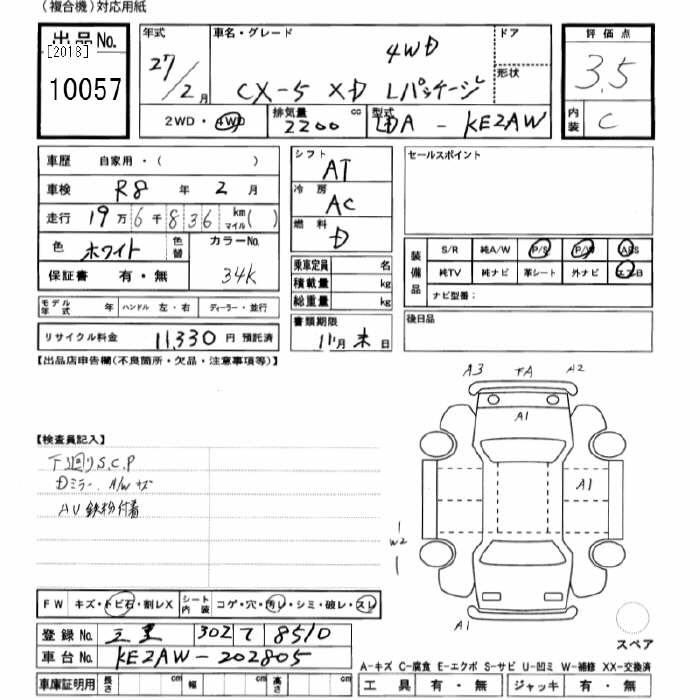 (複合機)対応用紙
出品No.
[2013]
10057
年式
27/2月
車名・グレード
4WD
CX-5 XD Lパッケージ
ドア
形状
評価点
3.5
内装 C
2WD・4WD
排気量 2200 cc
型式 LDA - KE2AW
車歴 自家用・( )
車検 R8年 2月
走行 19万6千836 km マイル( )
色 ホワイト 色替
カラーNo. 34K
保証書 有・無
シフト AT
冷房 AC
燃料 D
乗車定員 名
積載量 kg
総重量 kg
書類期限
11月末日
セールスポイント
装備品
S/R 純A/W P/S P/W ABS
純TV 純ナビ 革シート 外ナビ エアB
ナビ型番:
後日品
モデル年式 年 ハンドル 左・右 ディーラー・並行
リサイクル料金 11,330円 預託済
【出品店申告欄(不良箇所・欠品・注意事項等)】
【検査員記入】
下廻りS.C.P
Dミラー、A/Wキズ
AU 鉄粉付着
A3 FA A2
A1
A1
W2
A1
スペア
FW キズ・トビ石・割レX
シート内装 コゲ・穴・汚レ・シミ・破レ・スレ
登録No. 302 て 8510
車台No. KE2AW-202805
車庫証明用 長さ cm 幅 cm 高さ cm
A-キズ C-腐食 E-エクボ S-サビ U-凹ミ W-補修 XX-交換済
工具 有・無 ジャッキ 有・無